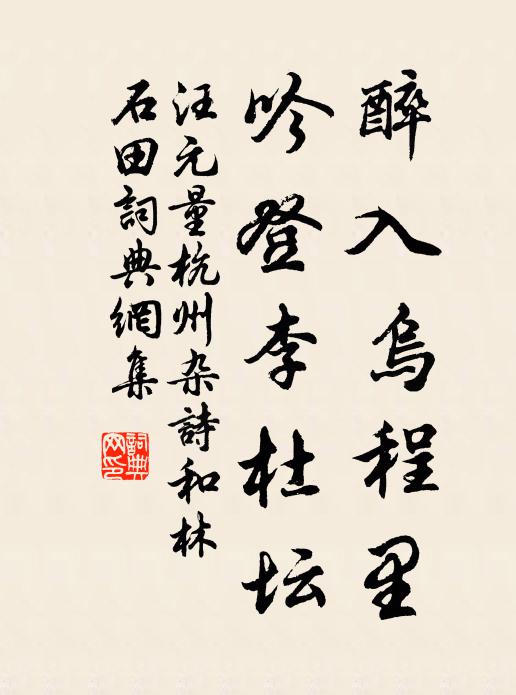 醉入烏程里
吟登李杜坛
汪元量杭州杂詩和林
石田詞典網集
詞典网印